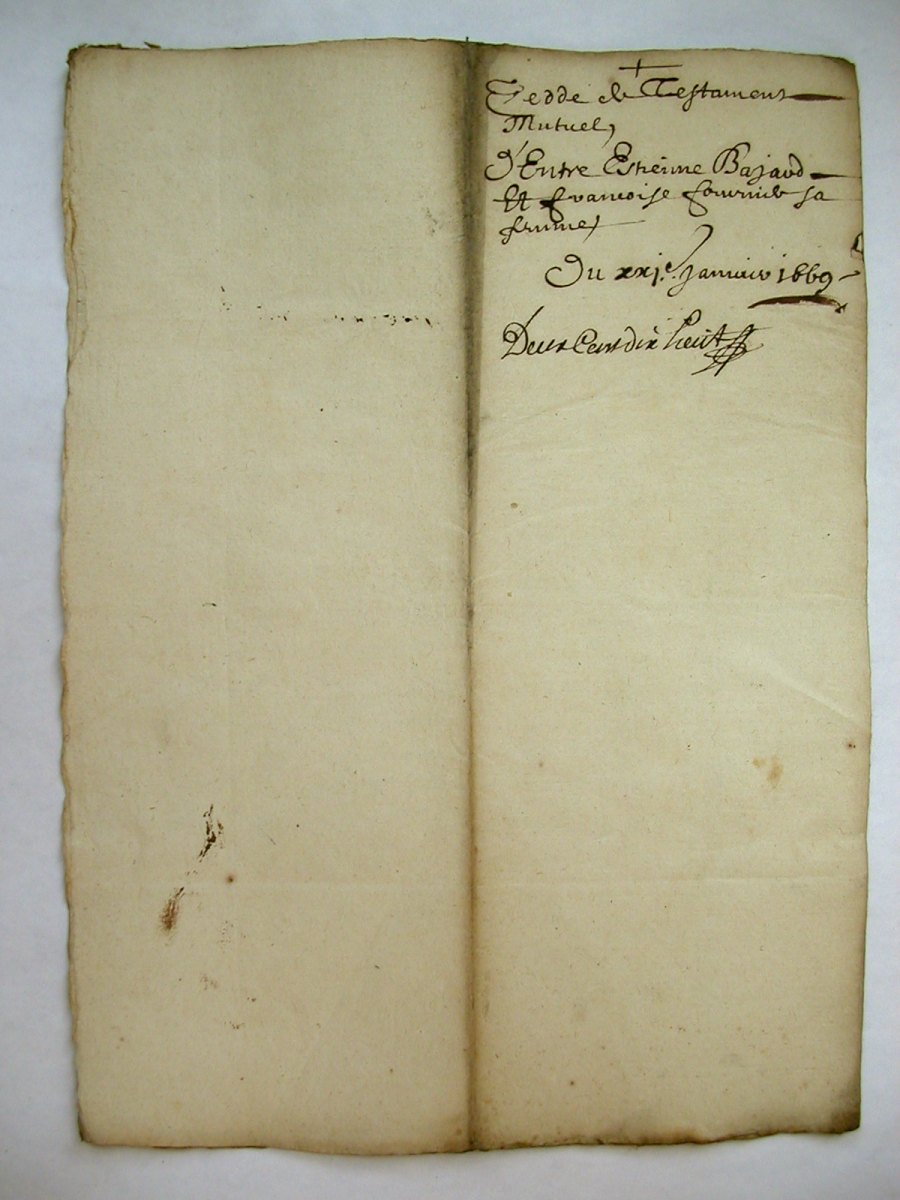 Cedde de Testament
Mutuel,
d'Entre Estienne Bajaud
Et francoise fournier sa
femme
Du xxj.e Janvier 1669
Deux Cent dix huit